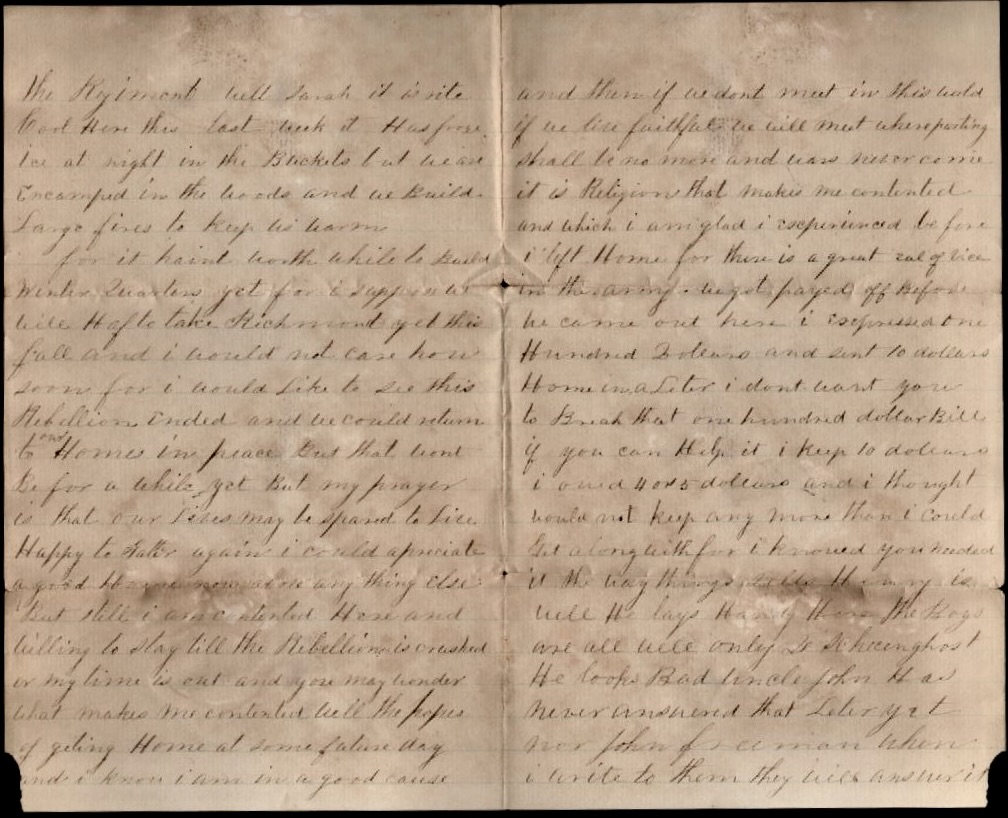 the Regiment well Sarah it is rite
Cool Here this last week it Has froze
ice at night in the Buckets but we are
Encamped in the woods and we Build
Large fires to keep us warm
for it haint worth while to Build
Winter Quarters yet for i suppose we
will Haf to take Richmond yet this
fall and i would not care how
soon for i would Like to see this
Rebellion Ended and we could return
to our Homes in peace But that wont
Be for a while yet But my prayer
is that our Lives may be spared to Live
Happy to Gather again i could apreciate
a good Home now above any thing Else
But still i am contented Here and
willing to stay till the Rebellion is crushed
or my time is out and you may wonder
what makes me contented well the hopes
of geting Home at some future day
and i know i am in a good cause
and then if we dont meet in this world
if we live faithful we will meet where parting
shall be no more and wars never come
it is Religion that makes me contented
and which i am glad i exsperienced before
i left Home for there is a great eal of vice
in the army we got payed off Before
we came out here i expressed one
Hundred Dollars and sent 10 dollars
Home in a Leter i dont want you
to Break that one hundred dollar Bill
if you can Help it i keep 10 dollars
i owed 4 or 5 dollars and i thought
would not keep any more than i could
Get along with for i knowed you needed
it the way things Henry is
well He lays Handy Here the Boys
are all well only
He looks Bad Uncle John Has
never answered that Leter yet
nor John freeman when
i write to them they will answer it